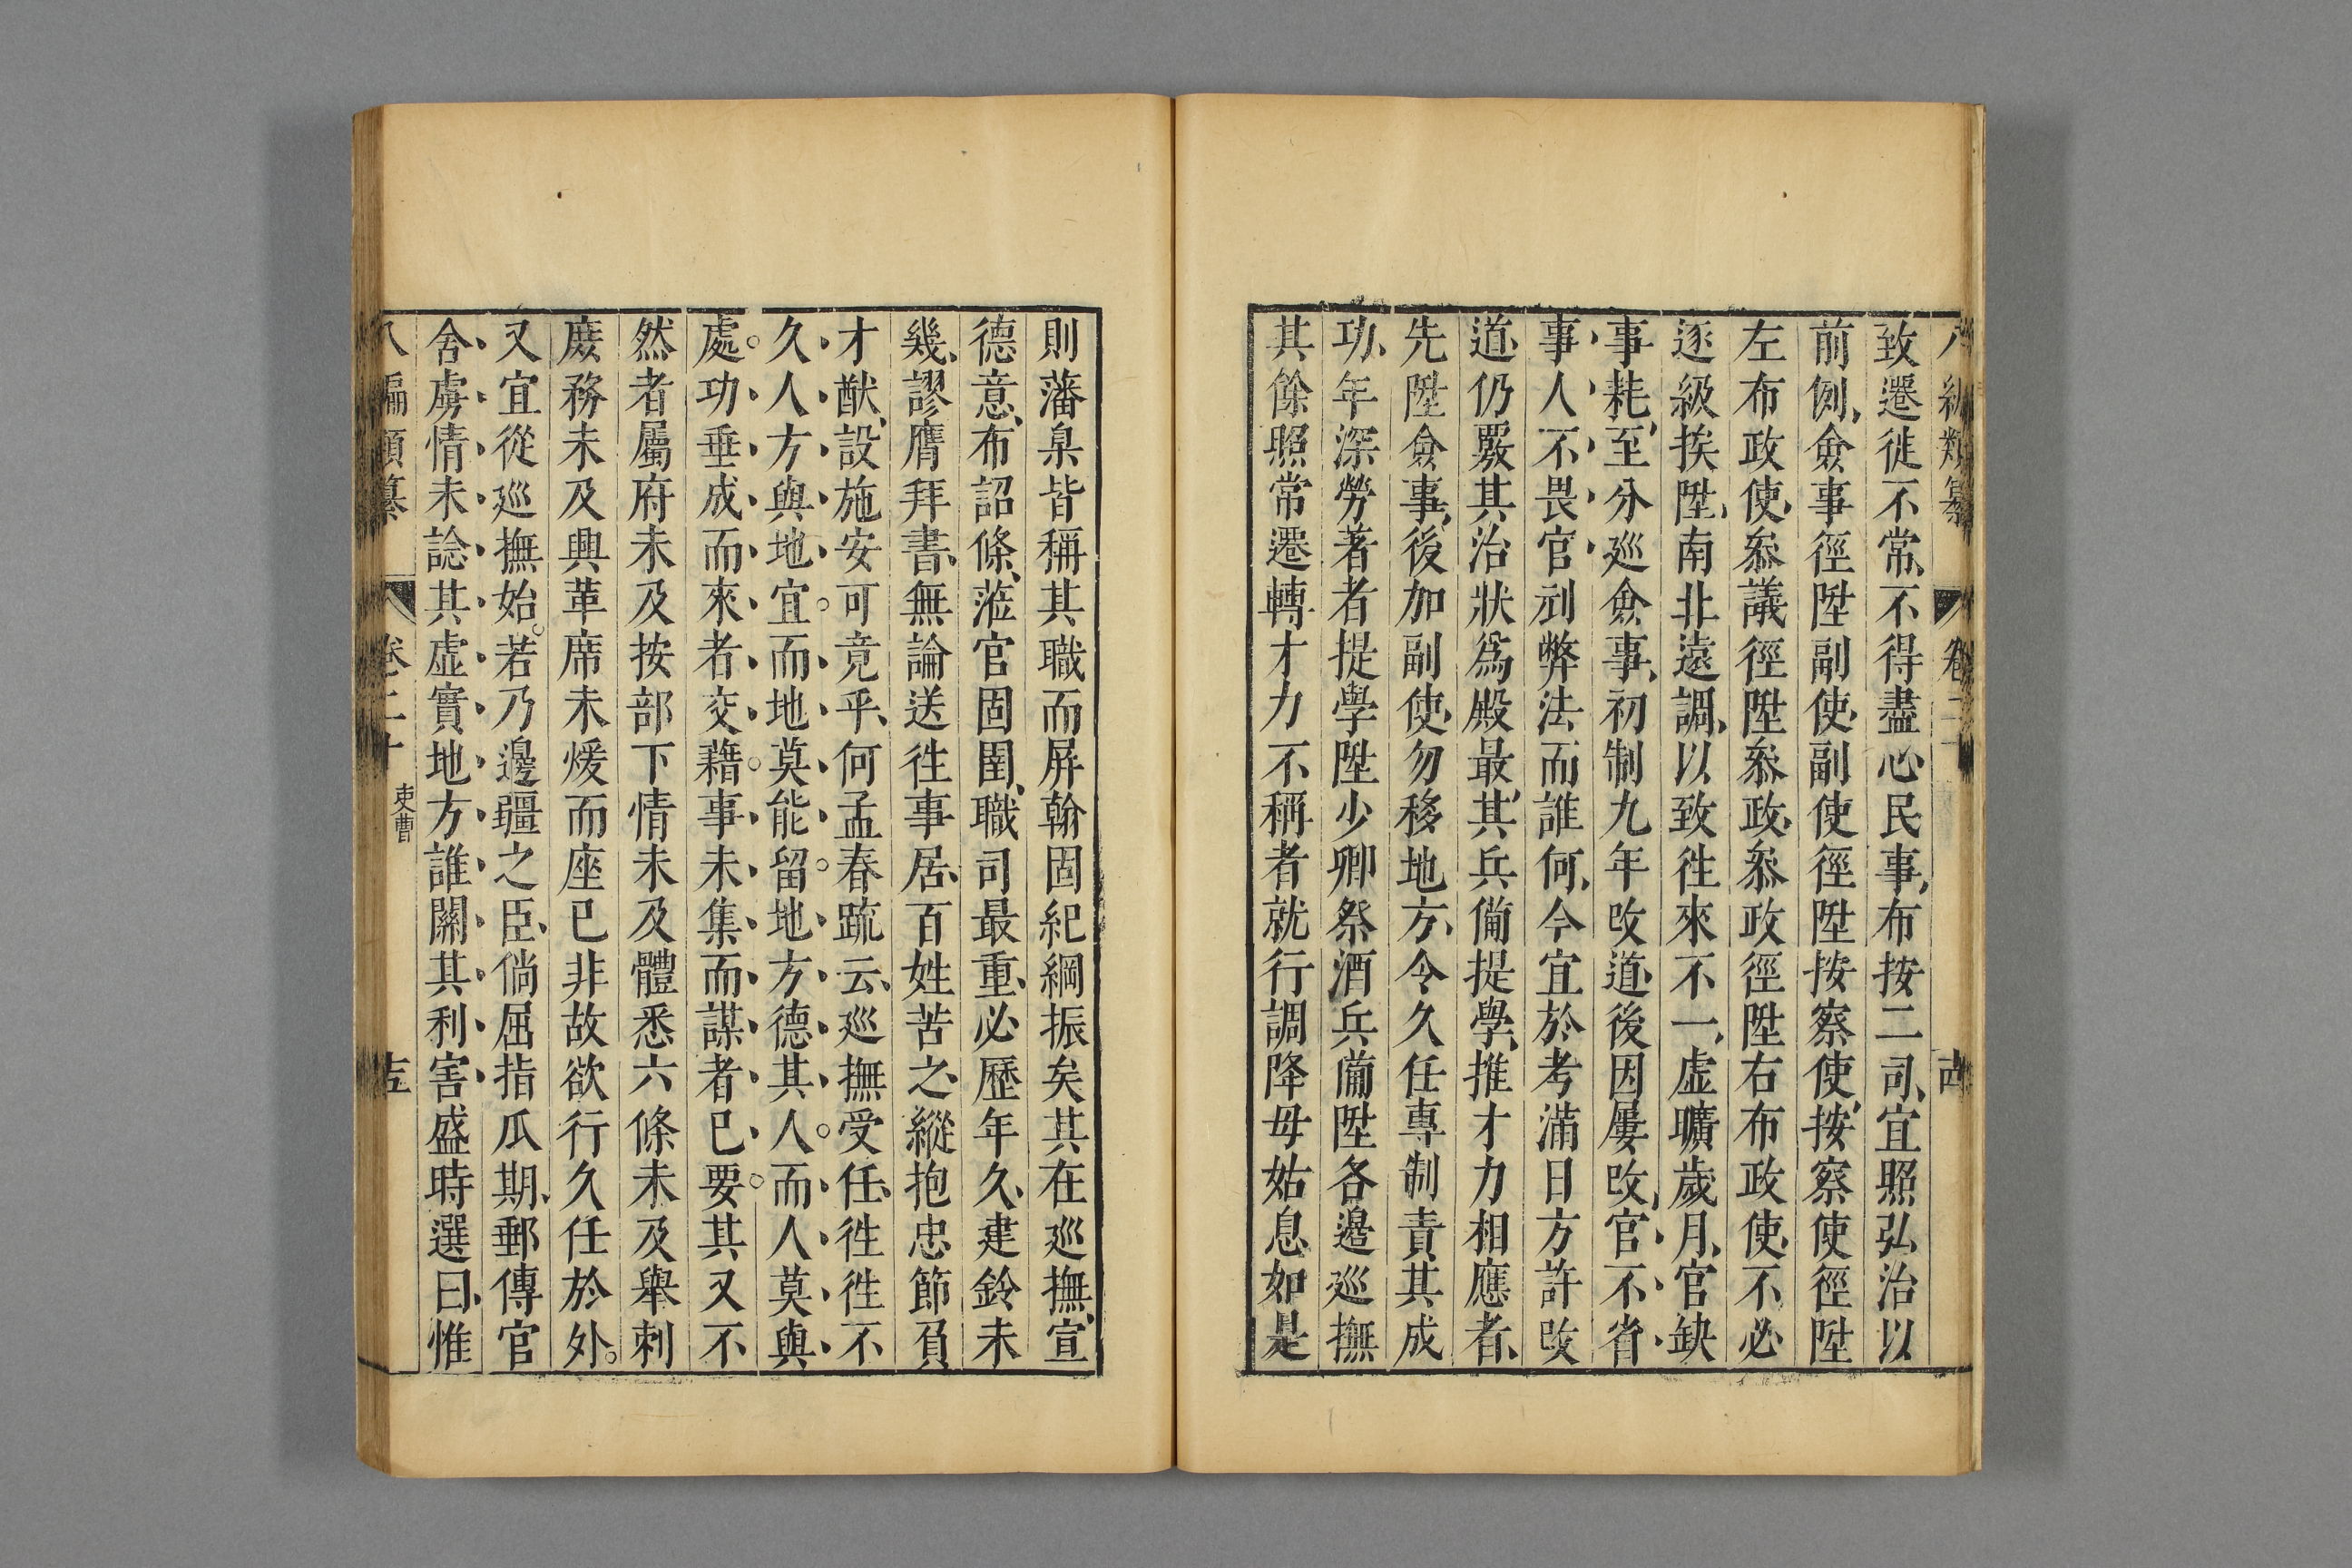 八編類纂 卷二十 十四
致遷徙不常、不得盡心民事、布按二司、宜照弘治以
前例、僉事徑陞副使、副使徑陞按察使、按察使徑陞
左布政使、叅議徑陞叅政、叅政徑陞右布政使、不必
逐級挨陞、南北遠調、以致徃來不一、虛曠歲月、官缺
事耗、至分巡僉事、初制九年改道、後因屢改、官不省
事、人不畏官、刓弊法而誰何、今宜於考滿日方許改
道、仍覈其治狀爲殿最、其兵備提學、推才力相應者、
先陞僉事、後加副使、勿移地方、令久任專制、責其成
功、年深勞著者、提學陞少卿祭酒、兵備陞各邊巡撫
其餘照常遷轉、才力不稱者、就行調降、毋姑息、如是
則藩臬皆稱其職、而屏翰固紀綱振矣、其在巡撫、宣
德意、布詔條、蒞官固圉、職司最重、必歷年久、建鈴未
幾、謬膺拜書、無論送徃事居、百姓苦之、縱抱忠節負
才猷、設施安可竟乎、何孟春疏云、巡撫受任、徃徃不
久、人方與地宜。而地莫能留。地方德其人。而人莫與
處。功垂成而來者交藉。事未集而謀者已要。其又不
然者、屬府未及按部、下情未及體悉、六條未及舉刺
庶務未及興革、席未煖而座已非故、欲行久任於外。
又宜從巡撫始。若乃邊疆之臣、倘屈指瓜期、郵傳官
舍、虜情未諗其虛實、地方誰關其利害、盛時選曰、惟
八編類纂 卷二十 吏曹 十五